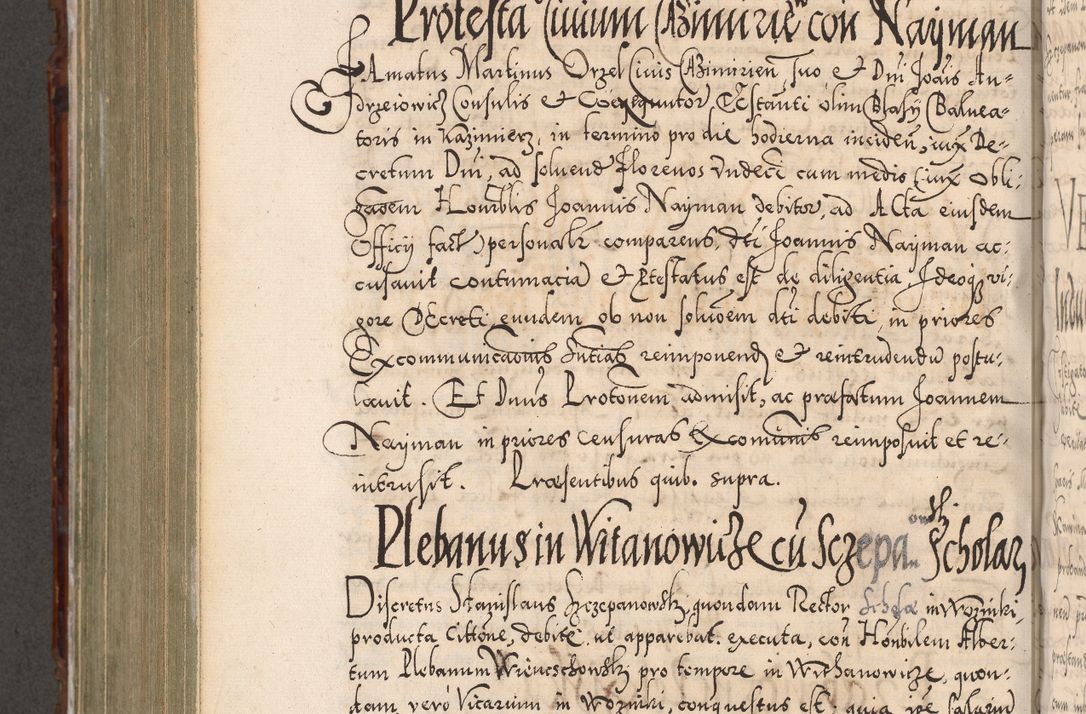 Protesta Civium Casimirien con Nayman
Famatus Martinus Orzel Civis Casimirien, suo et Dni Joais An-
drzeiowicz Consulis et Coexequutor Testanti olim Blasy Balnea-
toris in Kazimierz, in termino pro die hodierna inciden, iux De-
cretum Dni, ad solvend Florenos Undeci cum medio iux Obli-
gaoem Honblis Joannis Nayman debitor, ad Acta eiusdem
Officy fact personalr comparens, dti Joannis Nayman ac-
cusavit contumacia et Ptestatus est de diligentia, Ideoq vi-
gore Decreti eundem ob non soluoem dti debiti, in priores
Excommunicaonis Sntias reimponend et reintrudendu postu-
lavit. Et Dnus Protonem admisit, ac praefatum Joannem
Nayman in priores censuras Excomunis reimposuit et re-
intrusit. Praesentibus quib. supra.
Plebanus in Witanowicze cu Sczepanowsk. Scholar
Discretus Stanislaus Szczepanowsk, quondam Rector Scholae in Wozniki,
producta Cittone, debite ut apparebat executa, con Honbilem Alber-
tum Plebanum Wieneschowsk pro tempore in Withanowicze, quon-
dam vero Vicarium in Wozniki, conquestus est, quia ipe salariu